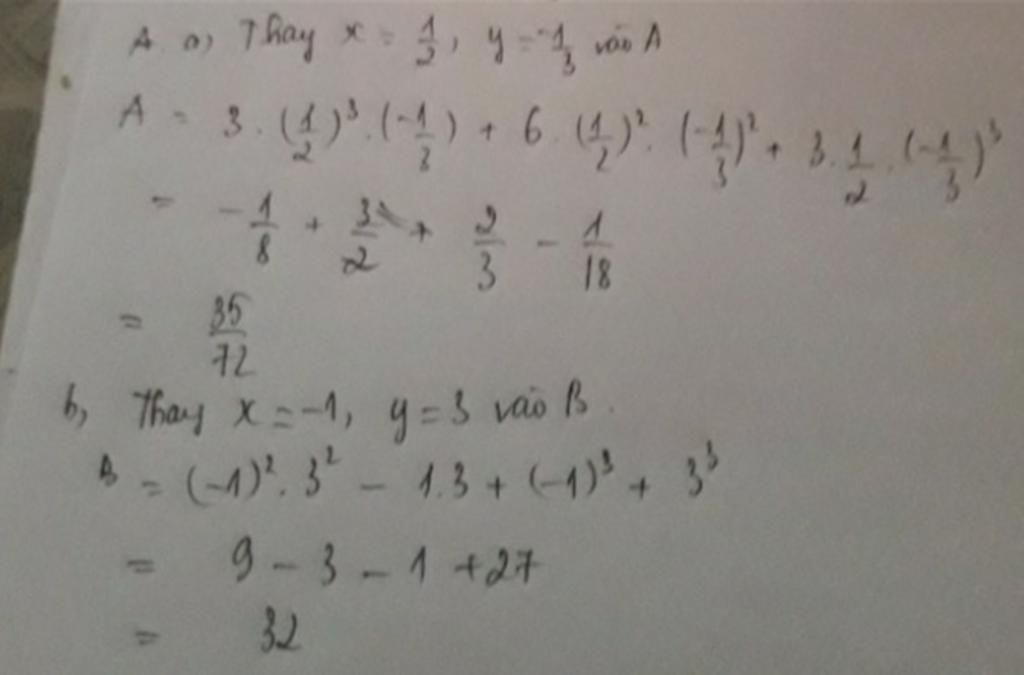 A a) Thay x = 1/2, y = -1/3 vào A
A = 3 . (1/2)³ . (-1/3) + 6 . (1/2)² . (-1/3)² + 3 . 1/2 . (-1/3)³
= -1/8 + 3/2 + 2/3 - 1/18
= 35/72
b, Thay x = -1, y = 3 vào B.
B = (-1)² . 3² - 1.3 + (-1)³ + 3³
= 9 - 3 - 1 + 27
= 32